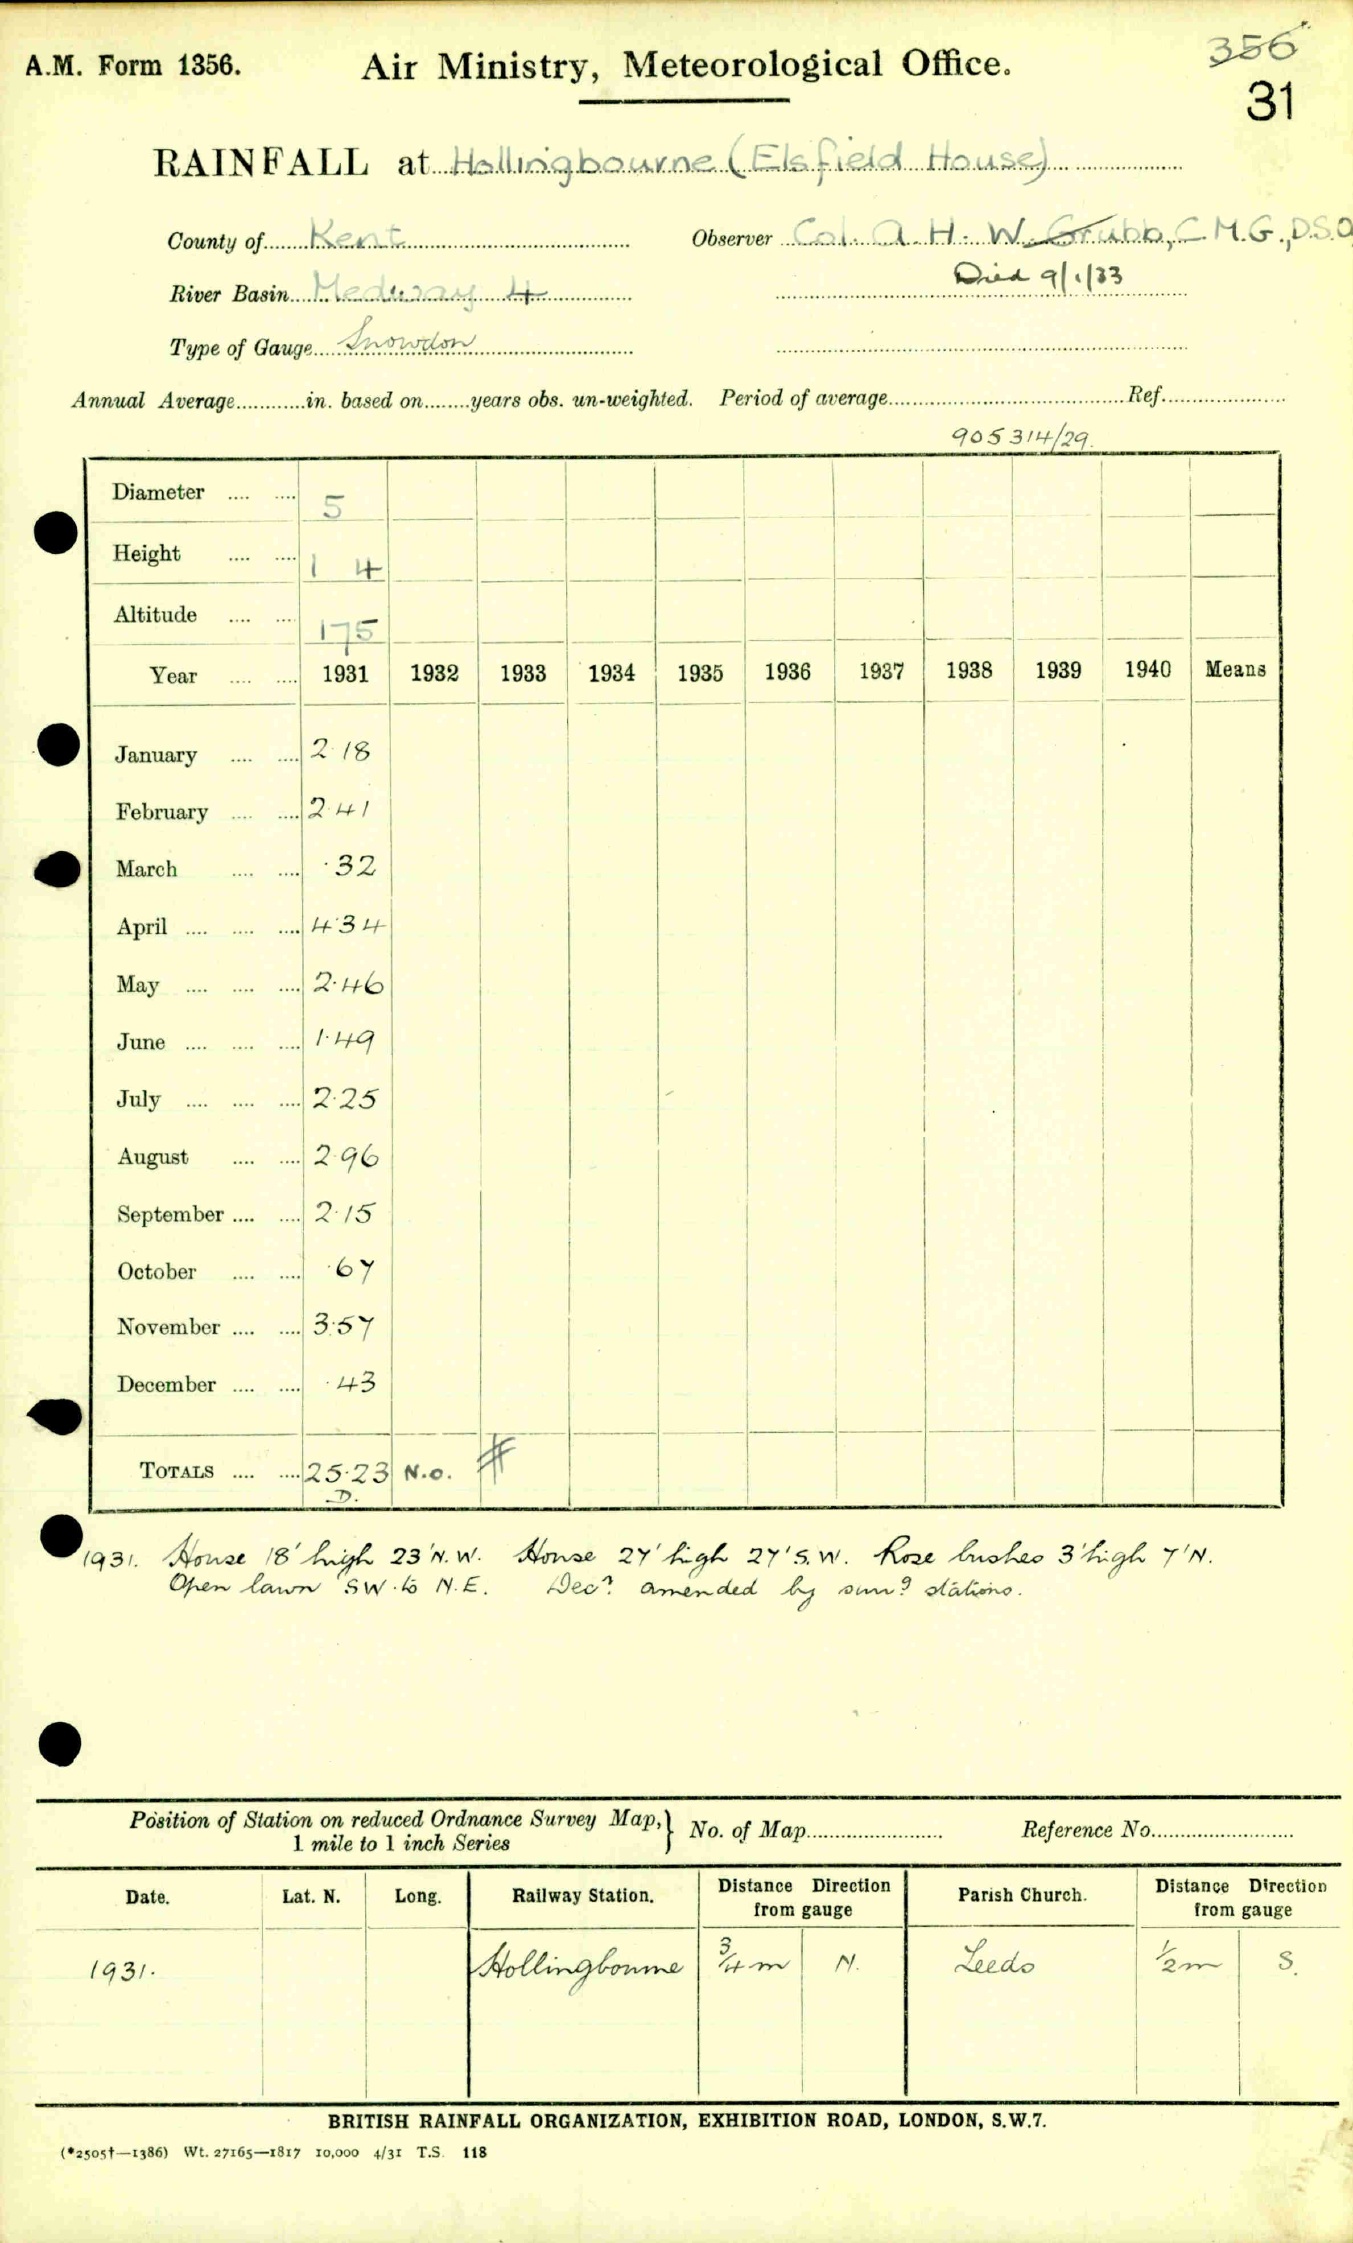 A.M. Form 1356. Air Ministry, Meteorological Office. 356
31
RAINFALL at Hollingbourne (Elsfield House)
County of Kent Observer Col. A. H. W. Grubb, C.M.G., D.S.O
River Basin Medway 4 Died 9/1/33
Type of Gauge Snowdon
Annual Average in. based on years obs. un-weighted. Period of average Ref.
905314/29.
Diameter 5
Height 1 4
Altitude 175
Year 1931 1932 1933 1934 1935 1936 1937 1938 1939 1940 Means
January 2·18
February 2·41
March ·32
April 4·34
May 2·46
June 1·49
July 2·25
August 2·96
September 2·15
October ·67
November 3·57
December ·43
TOTALS 25·23 N.O. #
D.
1931. House 18' high 23' N.W. House 27' high 27' S.W. Rose bushes 3' high 7' N.
Open lawn SW. to N.E. Decr. amended by surrg stations.
Position of Station on reduced Ordnance Survey Map, } No. of Map Reference No.
1 mile to 1 inch Series
Date. Lat. N. Long. Railway Station. Distance Direction from gauge Parish Church. Distance Direction from gauge
1931. Hollingbourne 3/4 m N. Leeds 1/2 m S.
BRITISH RAINFALL ORGANIZATION, EXHIBITION ROAD, LONDON, S.W.7.
(*2505†—1386) Wt. 27165—1817 10,000 4/31 T.S. 118